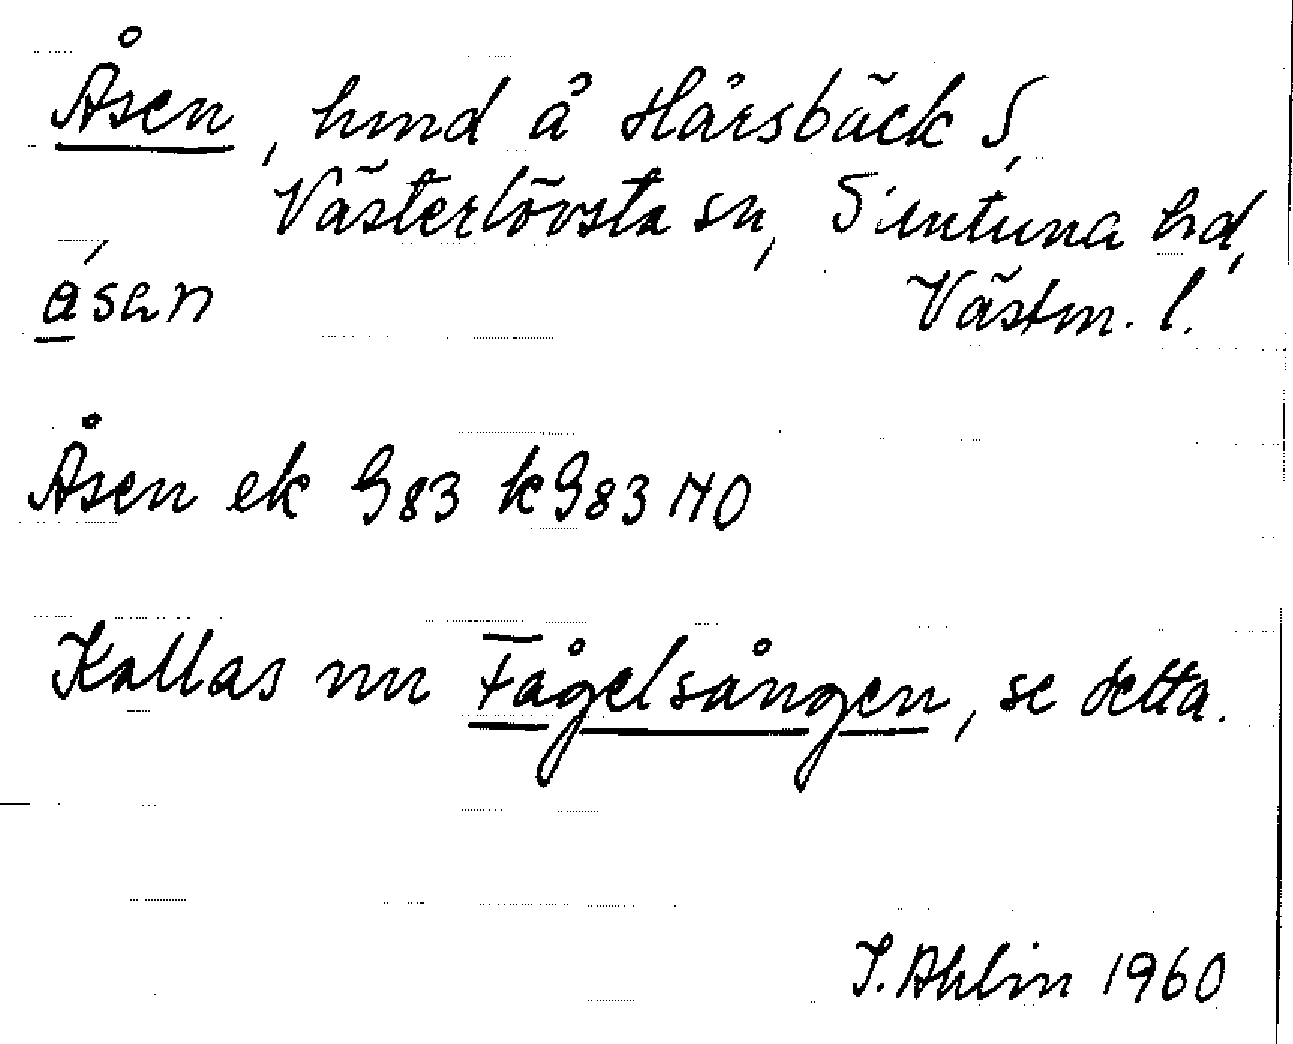 Åsen, hmd å Hårsbäck S,
Västerlövsta sn, Simtuna hd,
Västm. l.
åsan
Åsen ek G83 kG83 NO
Kallas nu Fågelsången, se detta.
I. Ahlin 1960